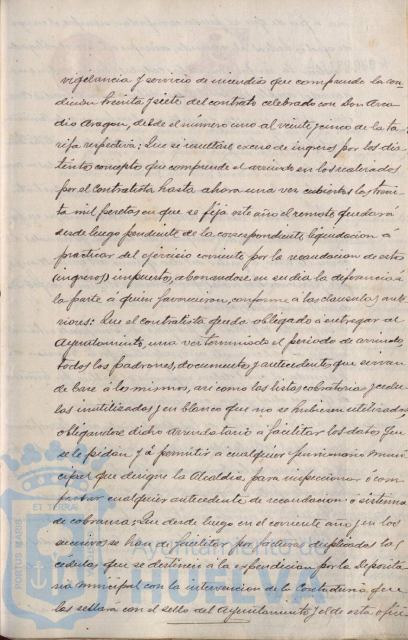 vigilancia y servicio de incendio que comprende la con-
dicion treinta y siete del contrato celebrado con Don Arca-
dio Aragon, desde el número uno al veinte y cinco de la ta-
rifa respectiva; Que si resultase exceso de ingresos por los dis-
tintos conceptos que comprende el arriendo en los realizados
por el contratista hasta ahora una vez cubiertas las trein-
ta mil pesetas en que se fija este año el remate quedará
desde luego pendiente de la correspondiente liquidacion á
practicar del ejercicio corriente por la recaudacion de estos
(ingresos) impuestos, abonandose en su dia la diferencia á
la parte á quien favorezca, conforme a las clausulas ante-
riores: Que el contratista queda obligado á entregar al
Ayuntamiento, una vez terminado el periodo de arriendo,
todos los padrones, documentos y antecedentes que sirvan
de base á los mismos, asi como las listas cobratorias y cedu-
las inutilizadas y en blanco que no se hubiesen utilizado,
obligandose dicho arrendatario á facilitar los datos que
se le pidan y á permitir a cualquier funcionario muni-
cipal que designe la Alcaldia, para inspeccionar ó com-
probar cualquier antecedente de recaudacion ó sistema
de cobranza; Que desde luego en el corriente año y en los
sucesivos se han de facilitar por facturas duplicadas las
cedulas que se destinen á la expendicion por la Deposita-
ria Municipal con la intervencion de la Contaduria, que
las sellará con el sello del Ayuntamiento y el de esta ofici-
PORTUS MARIS
ET TERRÆ
Ayuntamiento de
HUELVA